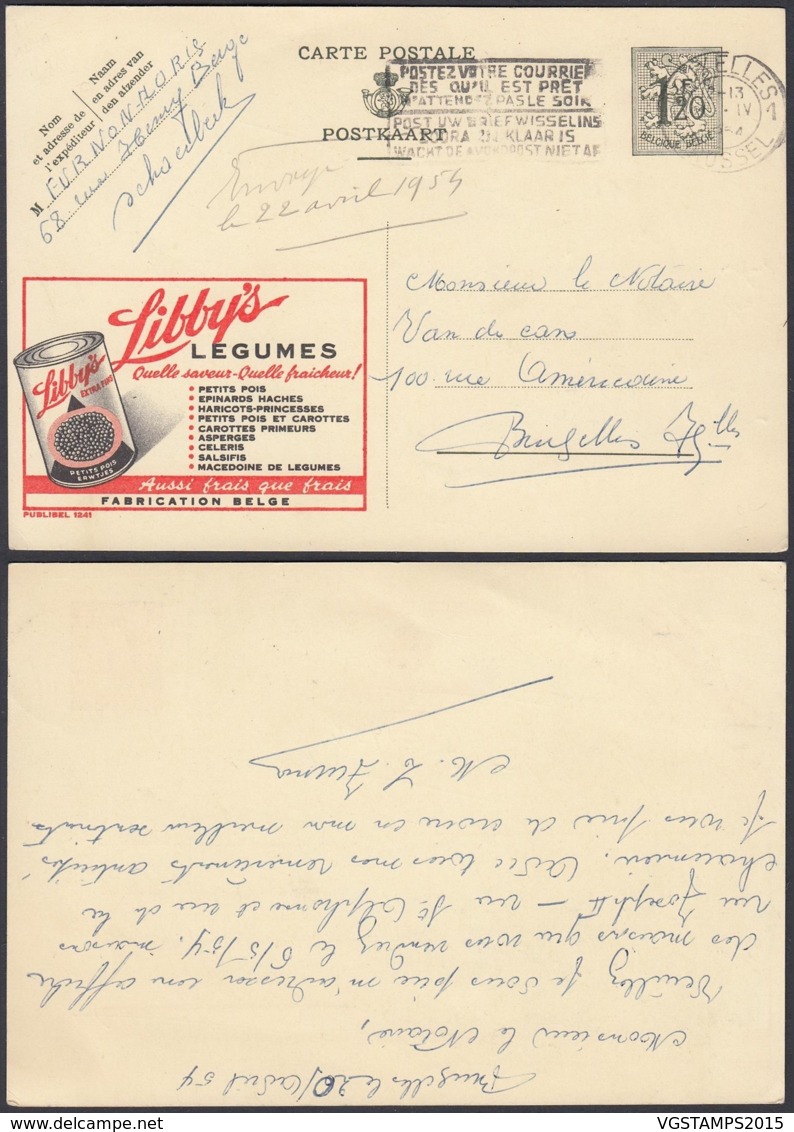 CARTE POSTALE
POSTKAART
Naam
en adres van
den afzender
Nom
et adresse de
l'expéditeur
M
68 rue Henry Berge
Schaerbeek
POSTEZ VOTRE COURRIE
DES QU'IL EST PRÊT
N'ATTENDEZ PAS LE SOIR
POST UW BRIEFWISSELING
ZOODRA ZIJ KLAAR IS
WACHT DE AVONDPOST NIET AF
1F20
BELGIQUE BELGIË
ELLES 1
-13
IV
USSEL
Envoyé
le 22 avril 1954
Monsieur le Notaire
100 rue Américaine
Bruxelles
Libby's
LEGUMES
Quelle saveur-Quelle fraicheur!
• PETITS POIS
• EPINARDS HACHES
• HARICOTS-PRINCESSES
• PETITS POIS ET CAROTTES
• CAROTTES PRIMEURS
• ASPERGES
• CELERIS
• SALSIFIS
• MACEDOINE DE LEGUMES
Aussi frais que frais
FABRICATION BELGE
Libby's
EXTRA FINS
PETITS POIS
ERWTJES
PUBLIBEL 1241
Bruxelles le 20/Avril 54
Monsieur le Notaire,
Veuillez je vous prie m'adresser une affiche
des maisons que vous vendrez le 5/5/54, maisons
rue Joseph II – rue St Alphonse et rue de la
Charité. Avec tous mes remerciements anticipés
Je vous prie de croire en mes meilleurs sentiments
VGSTAMPS2015